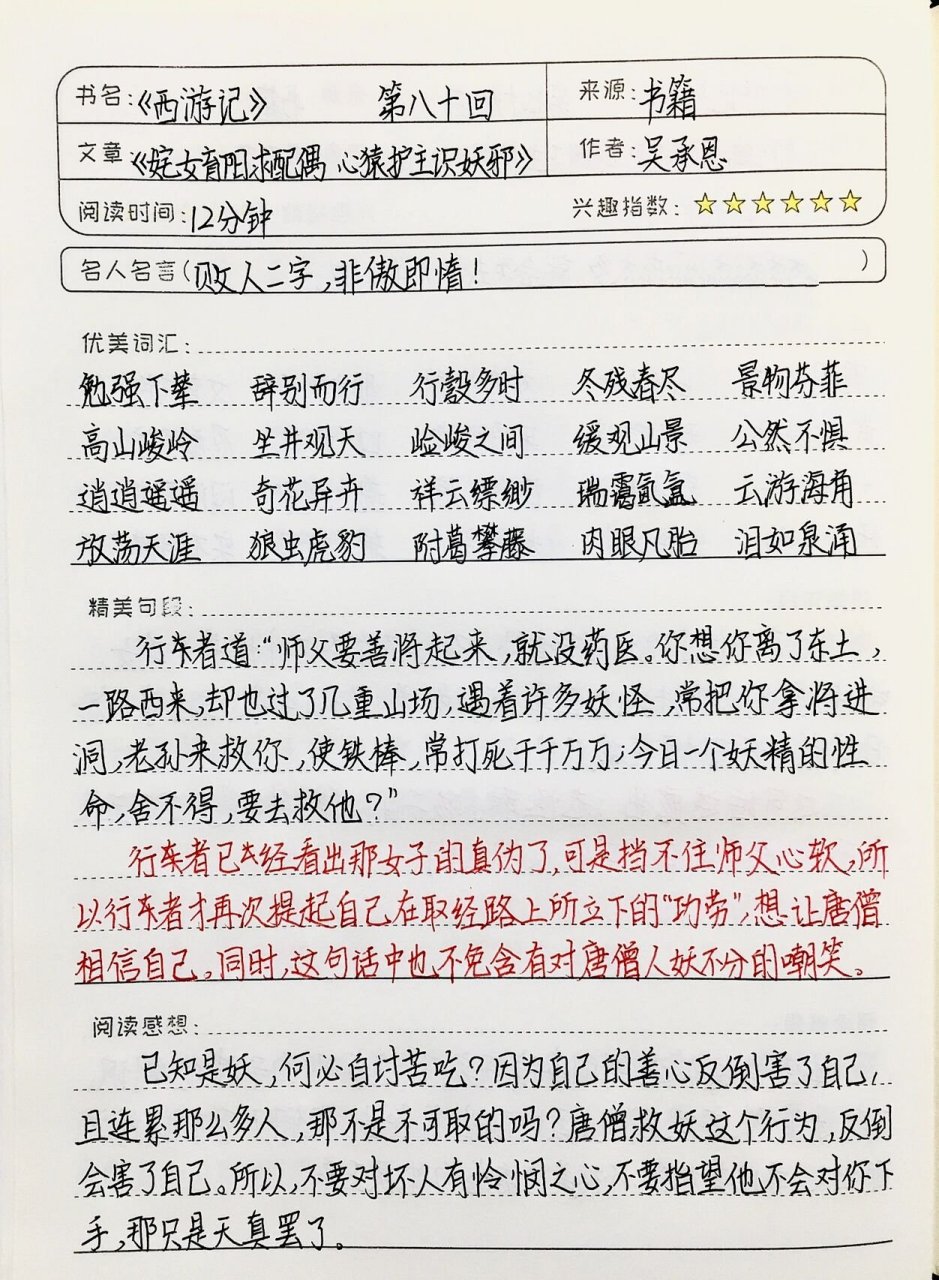 书名:《西游记》 第八十回 来源:书籍
文章:《姹女育阳求配偶 心猿护主识妖邪》 作者:吴承恩
阅读时间:12分钟 兴趣指数:☆☆☆☆☆☆
名人名言(败人二字,非傲即惰! )
优美词汇:
勉强下辇 辞别而行 行彀多时 冬残春尽 景物芬菲
高山峻岭 坐井观天 崄峻之间 缓观山景 公然不惧
逍逍遥遥 奇花异卉 祥云缥缈 瑞霭氤氲 云游海角
放荡天涯 狼虫虎豹 附葛攀藤 肉眼凡胎 泪如泉涌
精美句段:
行者道:“师父要善将起来,就没药医。你想你离了东土,
一路西来,却也过了几重山场,遇着许多妖怪,常把你拿将进
洞,老孙来救你,使铁棒,常打死千千万万;今日一个妖精的性
命,舍不得,要去救他?”
行者已经看出那女子的真伪了,可是挡不住师父心软,所
以行者才再次提起自己在取经路上所立下的“功劳”,想让唐僧
相信自己。同时,这句话中也不免含有对唐僧人妖不分的嘲笑。
阅读感想:
已知是妖,何必自讨苦吃?因为自己的善心反倒害了自己,
且连累那么多人,那不是不可取的吗?唐僧救妖这个行为,反倒
会害了自己。所以,不要对坏人有怜悯之心,不要指望他不会对你下
手,那只是天真罢了。